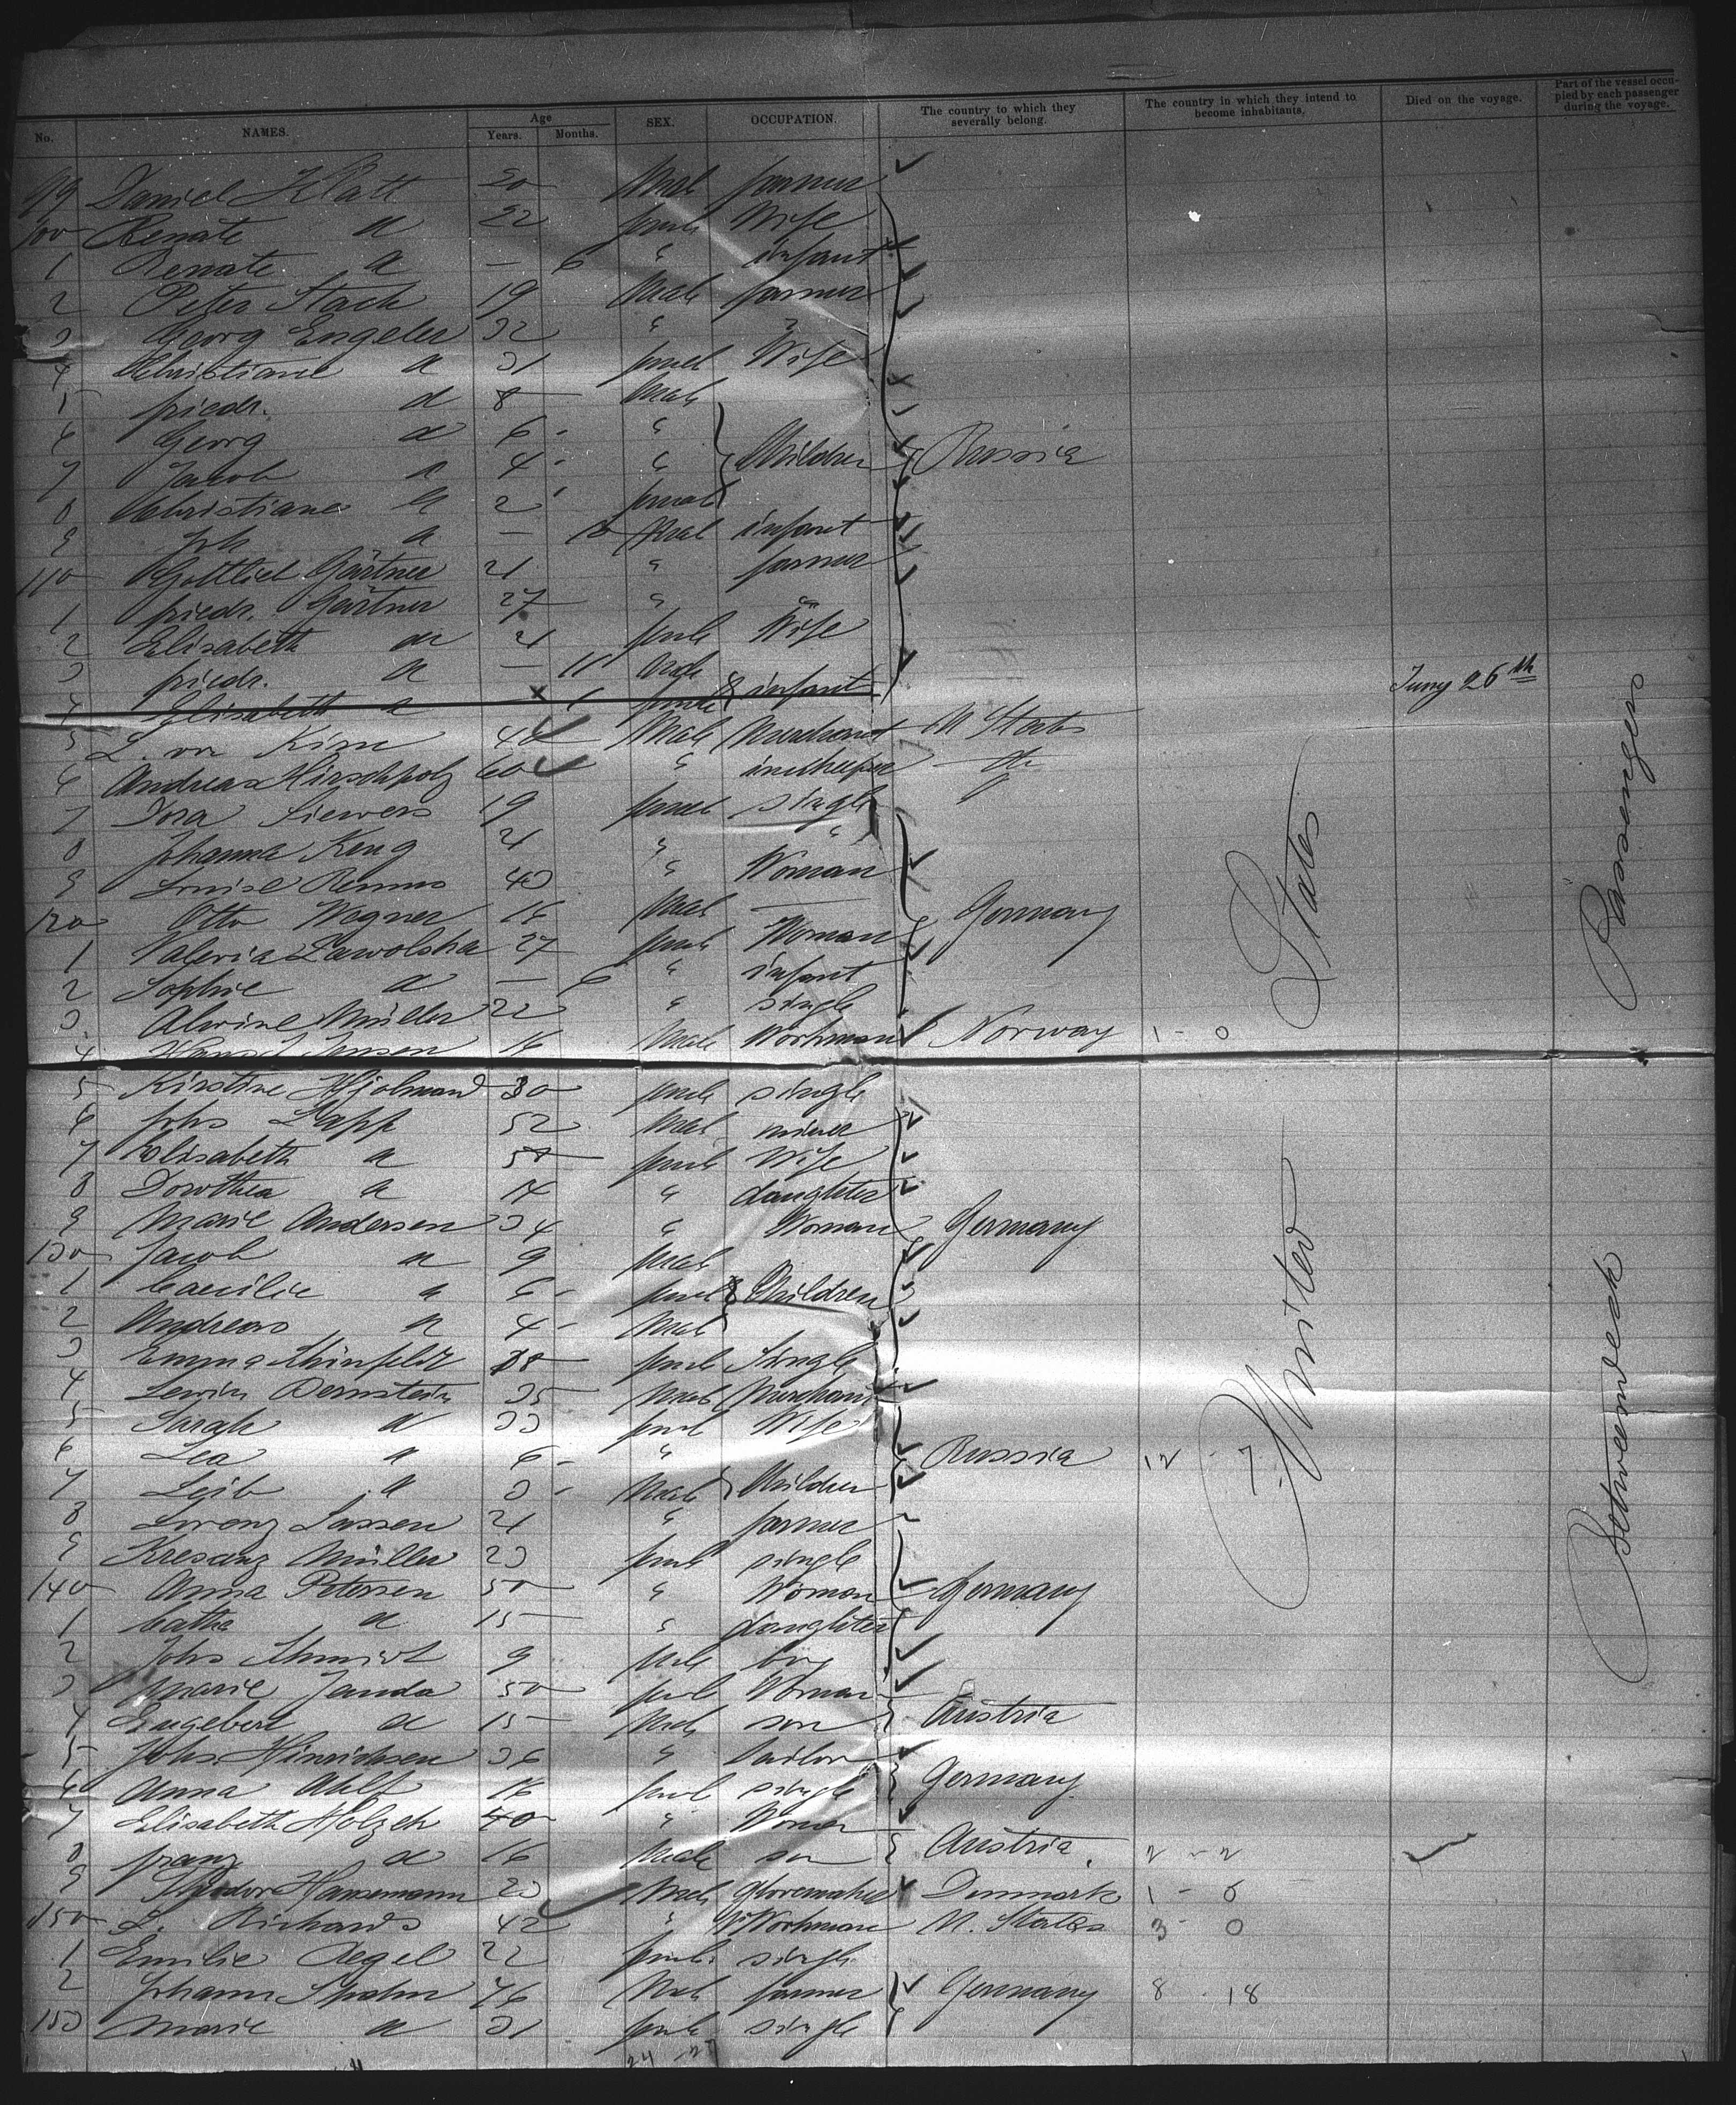 No. NAMES. Age Years. Months. SEX. OCCUPATION. The country to which they severally belong. The country in which they intend to become inhabitants. Died on the voyage. Part of the vessel occupied by each passenger during the voyage.
99 Daniel Klatt 20 Male farmer
100 Renate a 22 female Wife
1 Renate a — 6 " infant
2 Peter Stach 19 Male farmer
3 Georg Engeler 32 " "
4 Christiane a 31 female Wife
5 friedr. a 8 — Male
6 Georg a 6 - "
7 Jacob a 4 - " Children Russia
8 Christiane a 2 female
9 Joh a — 10 Male infant
110 Gottlieb Gärtner 21 " farmer
1 friedr. Gärtner 27 " "
2 Elisabeth a 21 female Wife
3 friedr. a — 11 Male
4 Elisabeth a — 1 female infant Juny 26th
5 L. von Male Merchant U States
6 Andreas Hirschholz 60 " innkeeper do
7 Dora Siewers 19 female single
8 Johanna King 21 " "
9 Louise Remus 43 " Woman
120 Otto Wegner 16 Male — Germany
1 Valeria Zawolska 27 female Woman
2 Sophie a — 6 " infant
3 Alwine Müller 22 " single
4 Jensen 16 Male Workman Norway 1 - 0
5 Kirstine 30 female single
6 Johs Lapp 52 Male miner
7 Elisabeth a female Wife
8 Dorothea a 14 " daughter
9 Marie Andersen 34 " Woman Germany
130 Jacob a 9 Male
1 Caecilie a 6 - female Children
2 Andreas a 4 - Male
3 Emma Shinfeldt female Single
4 Lewin Bernstein 35 Male Merchant
5 Sarah a 33 female Wife
6 Lea a 6 - " Russia 12 - 7
7 Leib a 3 - Male Children
8 Lorenz Lassen 21 " farmer
9 Kresanz Müller 23 female single
140 Anna Petersen 50 " Woman Germany
1 Catha a 15 " daughter
2 Johs Schmidt 9 Male boy
3 Marie Janda 50 female Woman
4 Engebert a 15 Male son Austria
5 Johs Hinrichsen 36 " tailor
6 Anna Ahlf 16 female single Germany
7 Elisabeth Holzek 40 " Woman
8 franz a 16 Male son Austria 2 - 2
9 Theodor Hansemann 23 Male glovemaker Denmark 1 - 0
150 L. Richards 42 " Workman U. States 3 - 0
1 Emilie Aegel 22 female single
2 Johann Spahn 46 Male farmer Germany 8 - 18
153 Marie a 31 female single
24 - 27
United States
Betweendeck Passengers